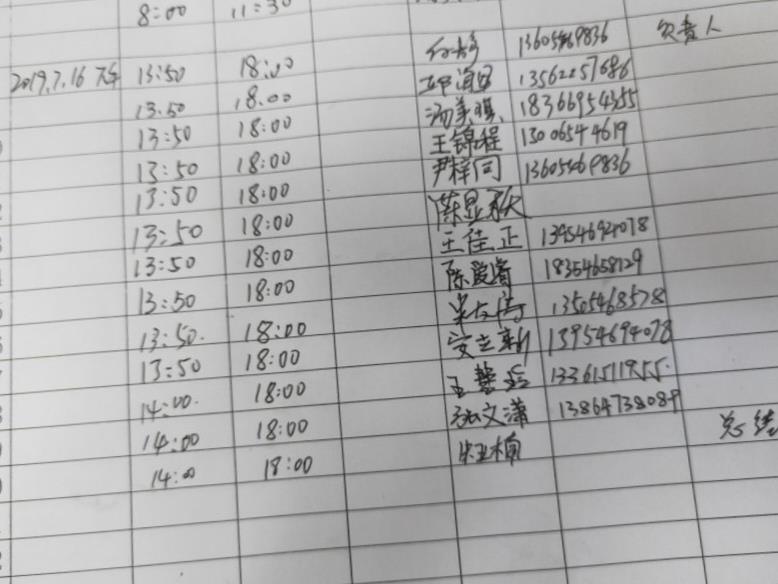 8:00 11:30
13605469836 负责人
2019.7.16 13:50 18:00 13562257686
13.50 18.00 汤美琪 18366954355
13:50 18:00 王锦程 13065444619
13:50 18:00 尹梓同 13605469836
13:50 18:00 陈显
13:50 18:00 王佳正 13954694078
13:50 18:00 陈爱睿 18354658129
13:50 18:00 13505468578
13:50. 18:00 安立新 13954694078
13:50 18:00 王 13361511955.
14:00. 18:00 张文潇 13864738089
14:00 18:00
14:00 18:00